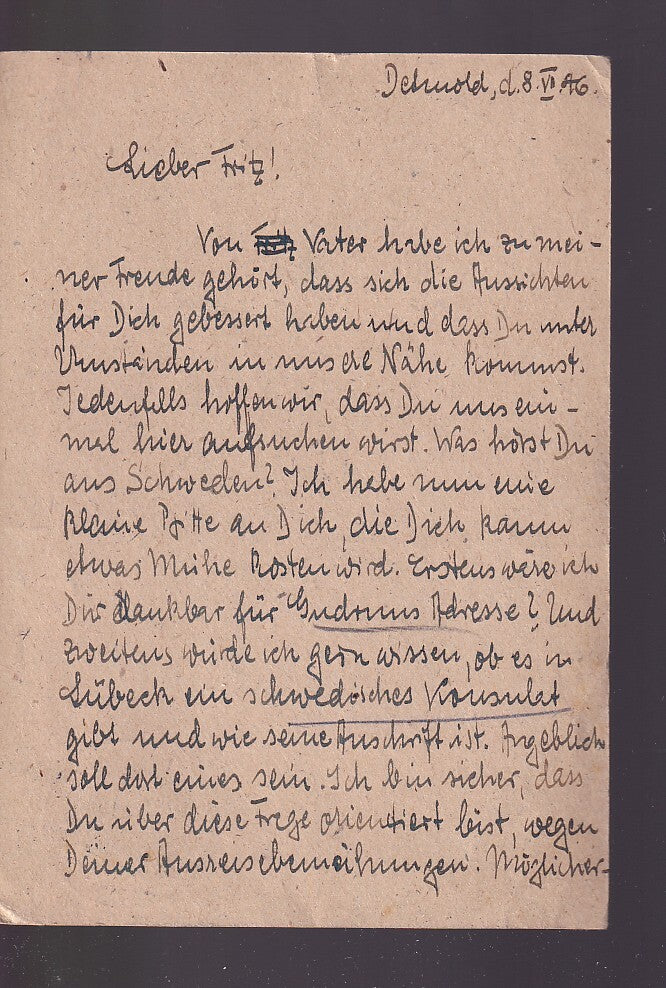 Detmold, d. 8. VI. 46.
Lieber Fritz!
Von Vater habe ich zu mei-
ner Freude gehört, dass sich die Aussichten
für Dich gebessert haben und dass Du unter
Umständen in unsere Nähe kommst.
Jedenfalls hoffen wir, dass Du uns ein-
mal hier aufsuchen wirst. Was hörst Du
aus Schweden? Ich habe nun eine
kleine Bitte an Dich, die Dich kaum
etwas Mühe kosten wird. Erstens wäre ich
Dir dankbar für Gudruns Adresse? Und
zweitens würde ich gern wissen, ob es in
Lübeck ein schwedisches Konsulat
gibt und wie seine Anschrift ist. Angeblich
soll dort eines sein. Ich bin sicher, dass
Du über diese Frage orientiert bist, wegen
Deiner Ausreisebemühungen. Möglicher-